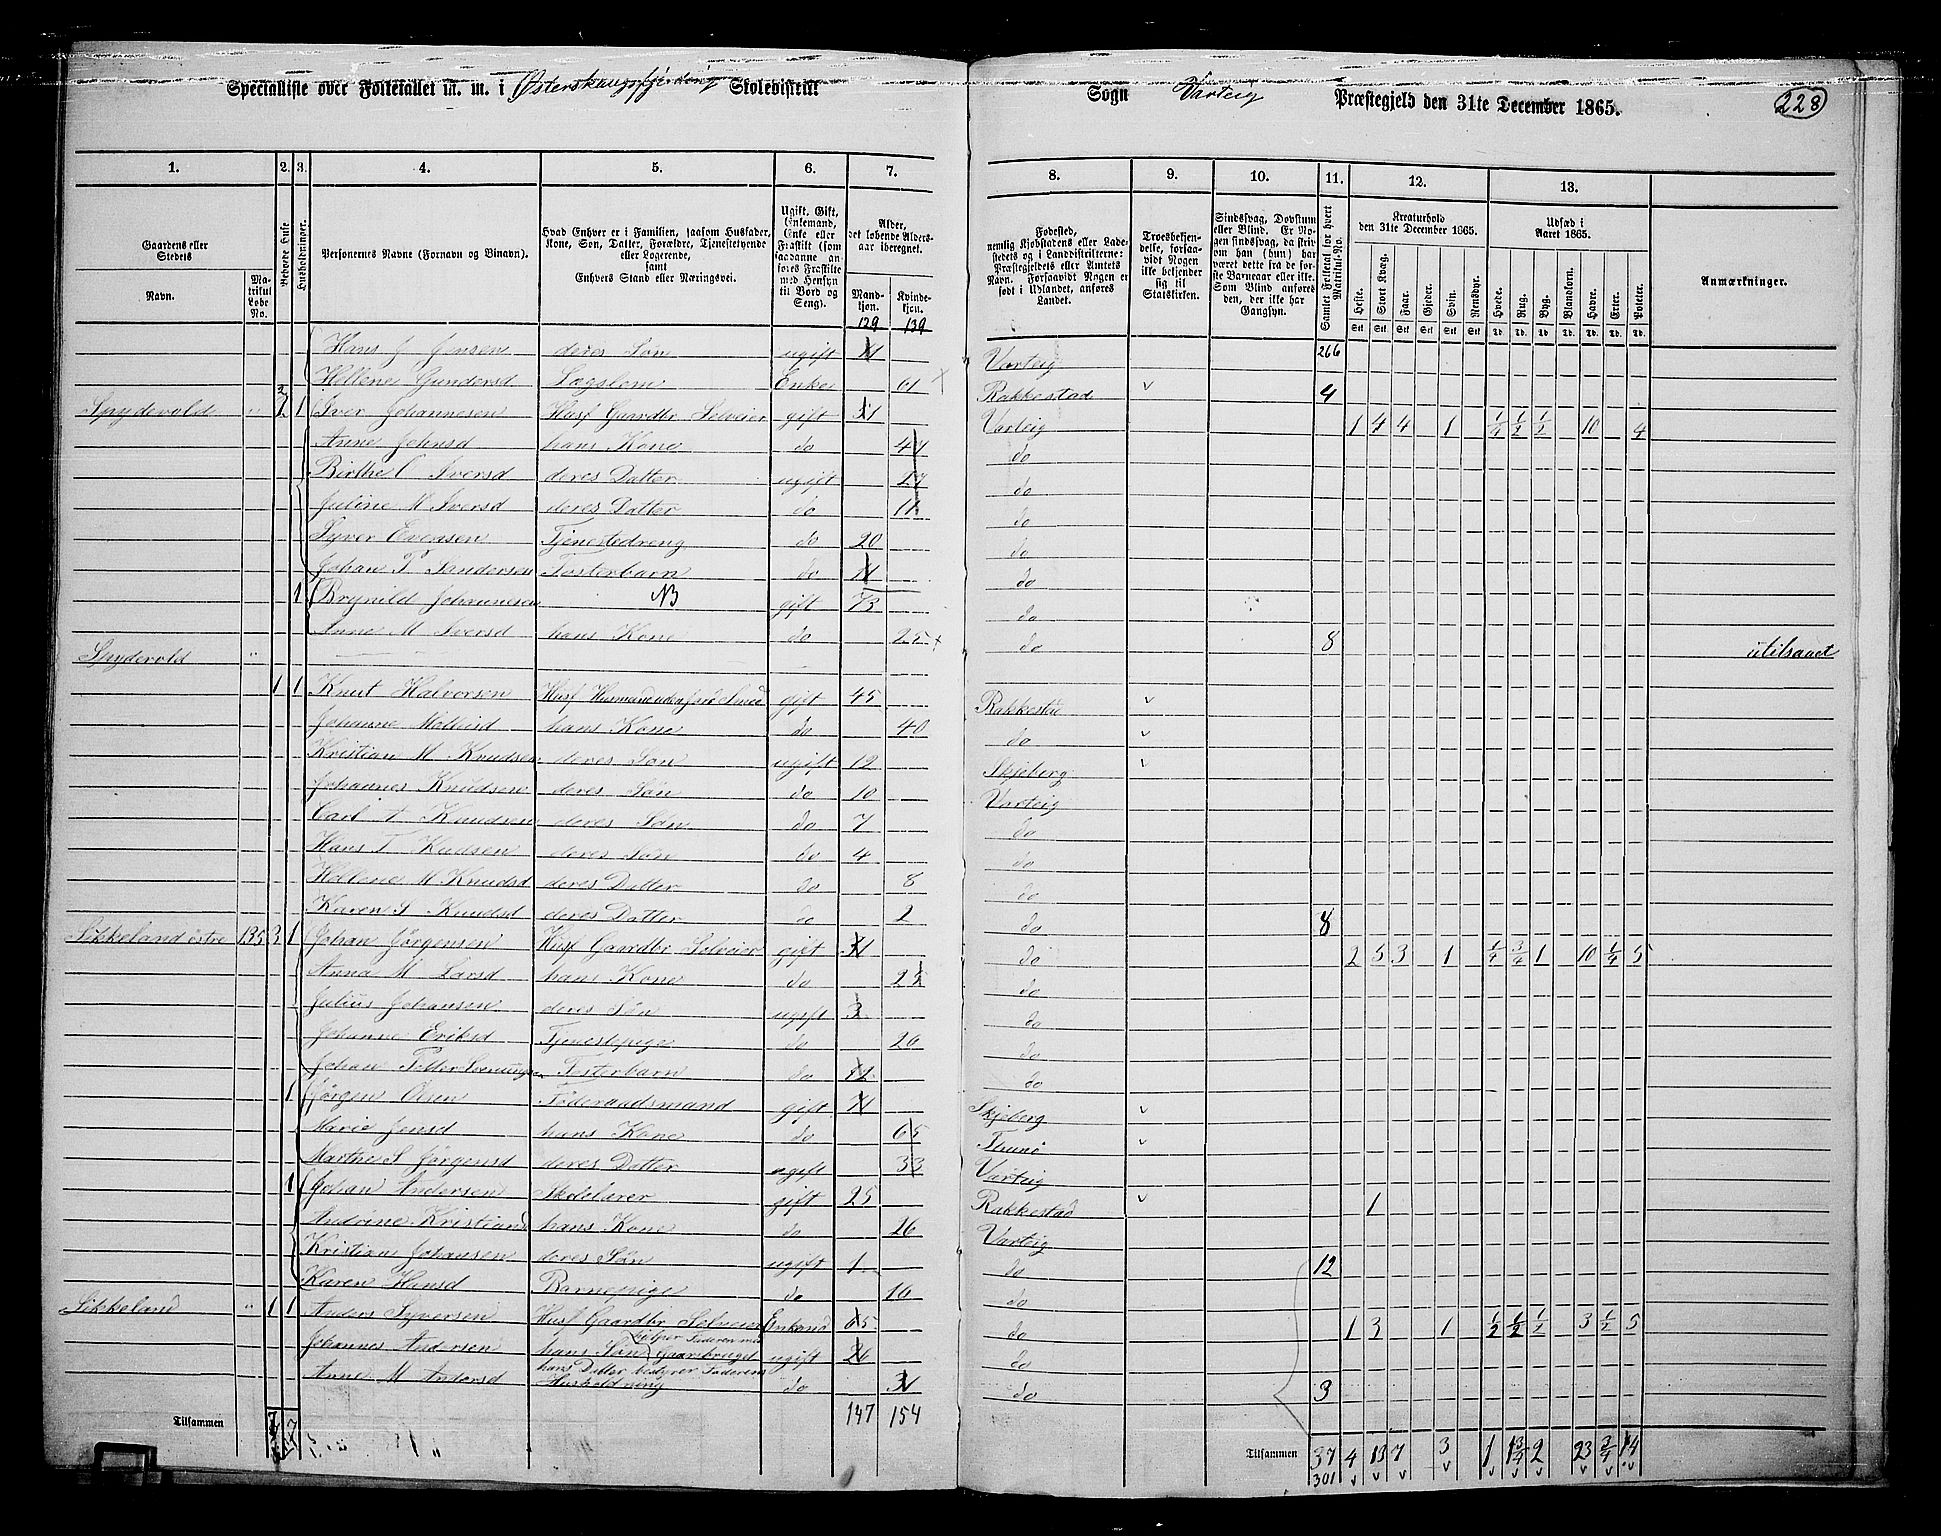 Specialliste over Folketallet m. m. i Østerskaugsfjerding Skoledistrikt Sogn Varteig Præstegjeld den 31te December 1865. 228
1. 2. 3. 4. 5. 6. 7. 8. 9. 10. 11. 12. 13.
Gaardens eller Stedets Navn. Matrikul Løbe No. Beboede Huse Husholdninger. Personernes Navne (Fornavn og Binavn). Hvad Enhver er i Familien, saasom Husfader, Kone, Søn, Datter, Forældre, Tjenestetyende eller Logerende, samt Enhvers Stand eller Næringsvei. Ugift, Gift, Enkemand, Enke eller Fraskilt (som saadanne anføres Fraskilte med Hensyn til Bord og Seng). Alder, det løbende Aldersaar iberegnet. Mandkjøn. Kvindekjøn.
Fødested, nemlig Kjøbstadens eller Ladestedets og i Landdistrikterne: Præstegjeldets eller Amtets Navn. Forsaavidt Nogen er født i Udlandet, anføres Landet. Troesbekjendelse, forsaavidt Nogen ikke bekjender sig til Statskirken. Sindssvag, Døvstum eller Blind. Er Nogen sindssvag, da skriv om han (hun) har været dette fra de første Barneaar eller ikke. Som Blind anføres den, der ikke har Gangsyn. Samlet Folketal for hvert Matrikul-No. Kreaturhold den 31te December 1865. Udsæd i Aaret 1865. Anmærkninger.
Heste. Stort Kvæg. Faar. Gjeder. Svin. Rensdyr. Hvede. Rug. Byg. Blandkorn. Havre. Erter. Poteter.
129 139
Hans J Jensen deres Søn ugift 11 Varteig 266
Hellene Gundersd Lægslem Enke 61 Rakkestad 4
Spydevold " 2 1 Iver Johannesen Husf Gaardbr Selveier gift 51 Varteig 1 4 4 1 1/4 1/2 1/2 10 4
Anne Johnsd hans Kone do 47 do
Birthe C Iversd deres Datter ugift 17 do
Juline M Iversd deres Datter do 11 do
Syver Evensen Tjenestedreng do 20 do
Johan P Andersen Fosterbarn do 11 do
1 Brynild Johannesen NB gift 73 do
Anne M Iversd hans Kone do 25 do 8
Spydevold " utilsaaet
1 1 Knut Halvorsen Husf Husmand uden Jord Smed gift 45 Rakkestad
Johanne Melvisd hans Kone do 40 do
Kristian M Knudsen deres Søn ugift 12 Skjeberg
Johannes Knudsen deres Søn do 10 Varteig
Carl A Knudsen deres Søn do 7 do
Hans T Kudsen deres Søn do 4 do
Hellene M Knudsd deres Datter do 8 do
Karen S Knudsd deres Datter do 2 do 8
Sikkeland østre 135 3 1 Johan Jørgensen Husf Gaardbr Selveier gift 31 do 2 5 3 1 1/4 3/4 1 10 1/4 5
Anna M Larsd hans Kone do 25 do
Julius Johansen deres Søn ugift 3 do
Johanne Eriksd Tjenestepige do 20 do
Johan Petter Fosterbarn do 12 do
1 Jørgen Olsen Føderaadsmand gift 71 Skjeberg
Marie Jensd hans Kone do 65 Thunø
Marthe S Jørgensd deres Datter ugift 33 Varteig
1 Johan Andersen Skolelærer gift 25 Rakkestad 1
Andrine Kristiand hans Kone do 26 Varteig
Kristian Johansen deres Søn ugift 1 do 12
Karen Hansd Barnepige do 16 do
Sikkeland " 1 1 Anders Syversen Husf Gaardbr Selveier Enkemd 65 do 1 3 1 1/2 1/2 1/2 3 1/2 5
Johannes Andersen hans Søn hjelper Faderen med Gaarsbruget ugift 26 do
Anne M Andersd hans Datter bestyrer Faderens Husholdning do 31 do 3
Tilsammen 7 7 147 154 Tilsammen 37 4 13 7 3 1 1 3/4 2 23 3/4 14
301